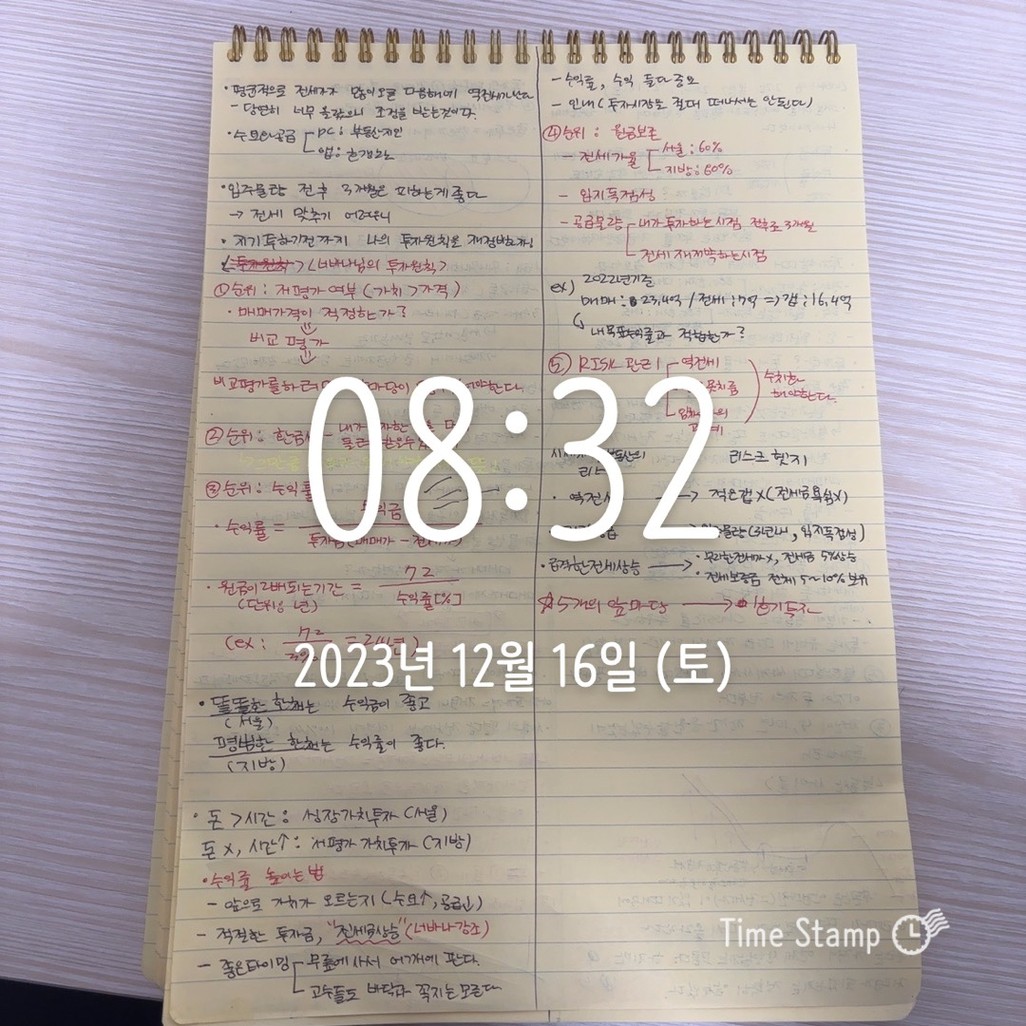 · 평균적으로 전세가가 많이 오른 다음해에 역전세가 난다
- 당연히 너무 올랐으니 조정을 받는것이다.
· 수요와 공급 PC : 부동산지인
앱 : 호갱노노
· 입주물량 전후 3개월은 피하는게 좋다
→ 전세 맞추기 어려우니
· 자기 투자하기 전까지 나의 투자원칙은 재정비하자!
투자원칙 > <너바나님의 투자원칙>
①순위 : 저평가 여부 (가치 > 가격)
· 매매가격이 적정한가?
비교평가
비교평가를 하려면 한다.
②순위 : 환금성 - 내가
③순위 : 수익률
· 수익률 =
투자금(매매가 - 전세가)
· 원금이 2배되는기간 = 72 / 수익률[%]
(단위: 년)
(ex : 72 / 3% = 24년)
· 똘똘한 한채는 수익금이 좋고
(서울)
평범한 한채는 수익률이 좋다.
(지방)
· 돈 > 시간 : 성장가치투자 (서울)
돈 X, 시간↑ : 저평가 가치투자 (지방)
· 수익률 높이는 법
- 앞으로 가치가 오르는지 (수요↑, 공급↓)
- 적절한 투자금, "전세금상승" (너바나강조)
- 좋은타이밍 무릎에 사서 어깨에 판다.
고수들도 바닥과 꼭지는 모른다.
- 수익률, 수익 둘다 중요
- 인내 (투자시장을 절대 떠나서는 안된다)
④순위 : 원금보존
- 전세가율 서울 : 60%
지방 : 80%
- 입지독점성
- 공급물량 내가 투자하는시점 전후로 3개월
전세 재계약하는시점
ex) 2022년기준
매매 : 23.4억 / 전세 : 7억 => 갭 : 16.4억
내 목표수익률과 적합한가?
⑤ RISK 관리 역전세
수치화
해야한다.
리스크 헷지
· 역전세 → 적은갭 X (전세금 욕심X)
→ 입주물량(3년내, 입지독점성)
· 급격한전세상승 → · 무리한전세가X, 전세금 5%상승
· 전세보증금 전체 5~10% 보유
☆ 5개의 앞마당 →
08:32
2023년 12월 16일 (토)
Time Stamp